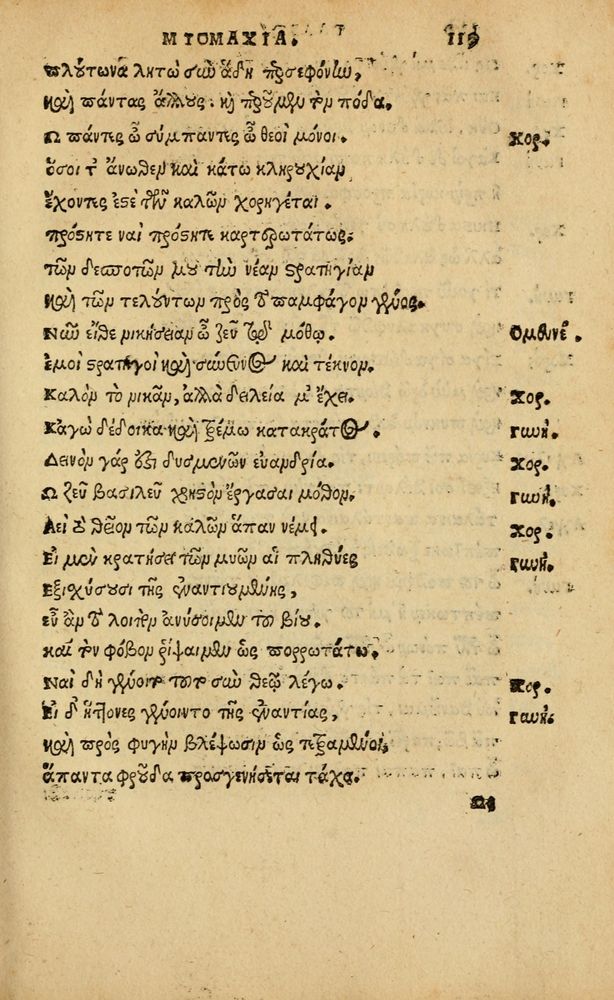 ΜΥΟΜΑΧΙΑ. 119
πλούτωνα λητὼ σὺν ἅδῃ προσεφόνῳ,
καὶ πάντας ἄλλους. καὶ πρὸ τὸν πόδα.
Ω πάντες ὦ σύμπαντες ὦ θεοὶ μόνοι. Χορ.
ὅσοι τ' ἄνωθεν καὶ κάτω κληρουχίαν
ἔχοντες ἐστὲ τῶν καλῶν χορηγέται.
πρόσητε ναὶ πρόσητε καρτερωτάτως.
τῶν δεσποτῶν μου τὴν νέαν στρατηγίαν
καὶ τῶν τελούντων πρὸς τὸ παμφάγον γένος.
Ναῦ εἴθε νικήσειαν ὦ ζεῦ τὸν μόθον. Ομευνέ.
ἐμοὶ στρατηγοὶ καὶ σύνευνος καὶ τέκνον.
Καλὸν τὸ νικᾶν, ἀλλὰ δειλεία μ' ἔχει. Χορ.
Κἀγὼ δέδοικα καὶ τρέμω κατακράτος. γυνή.
Δεινὸν γάρ ἐστι δυσμενῶν εὐανδρία. Χορ.
Ω ζεῦ βασιλεῦ χρηστὸν ἔργασαι μόθον. γυνή.
Αεὶ τὸ θεῖον τῶν καλῶν ἅπαν νέμει. Χορ.
Εἰ μὲν κρατήσει τῶν μυῶν αἱ πληθύες γυνή.
Εξισχύσουσι τῆς ἐναντιουμένης,
εὖ ἂν τὸ λοιπὸν ἀνύσοιμεν τοῦ βίου.
καὶ τὸν φόβον ῥίψαιμεν ὡς πορρωτάτω.
Ναὶ δὴ γένοιτο τοῦτο σὺν θεῷ λέγω. Χορ.
Εἰ δ' ἥττονες γένοιντο τῆς ἐναντίας, γυνή.
καὶ πρὸς φυγὴν βλέψωσιν ὡς πτεραμένοι,
ἅπαντα φροῦδα προσγενήσεται τάχει.